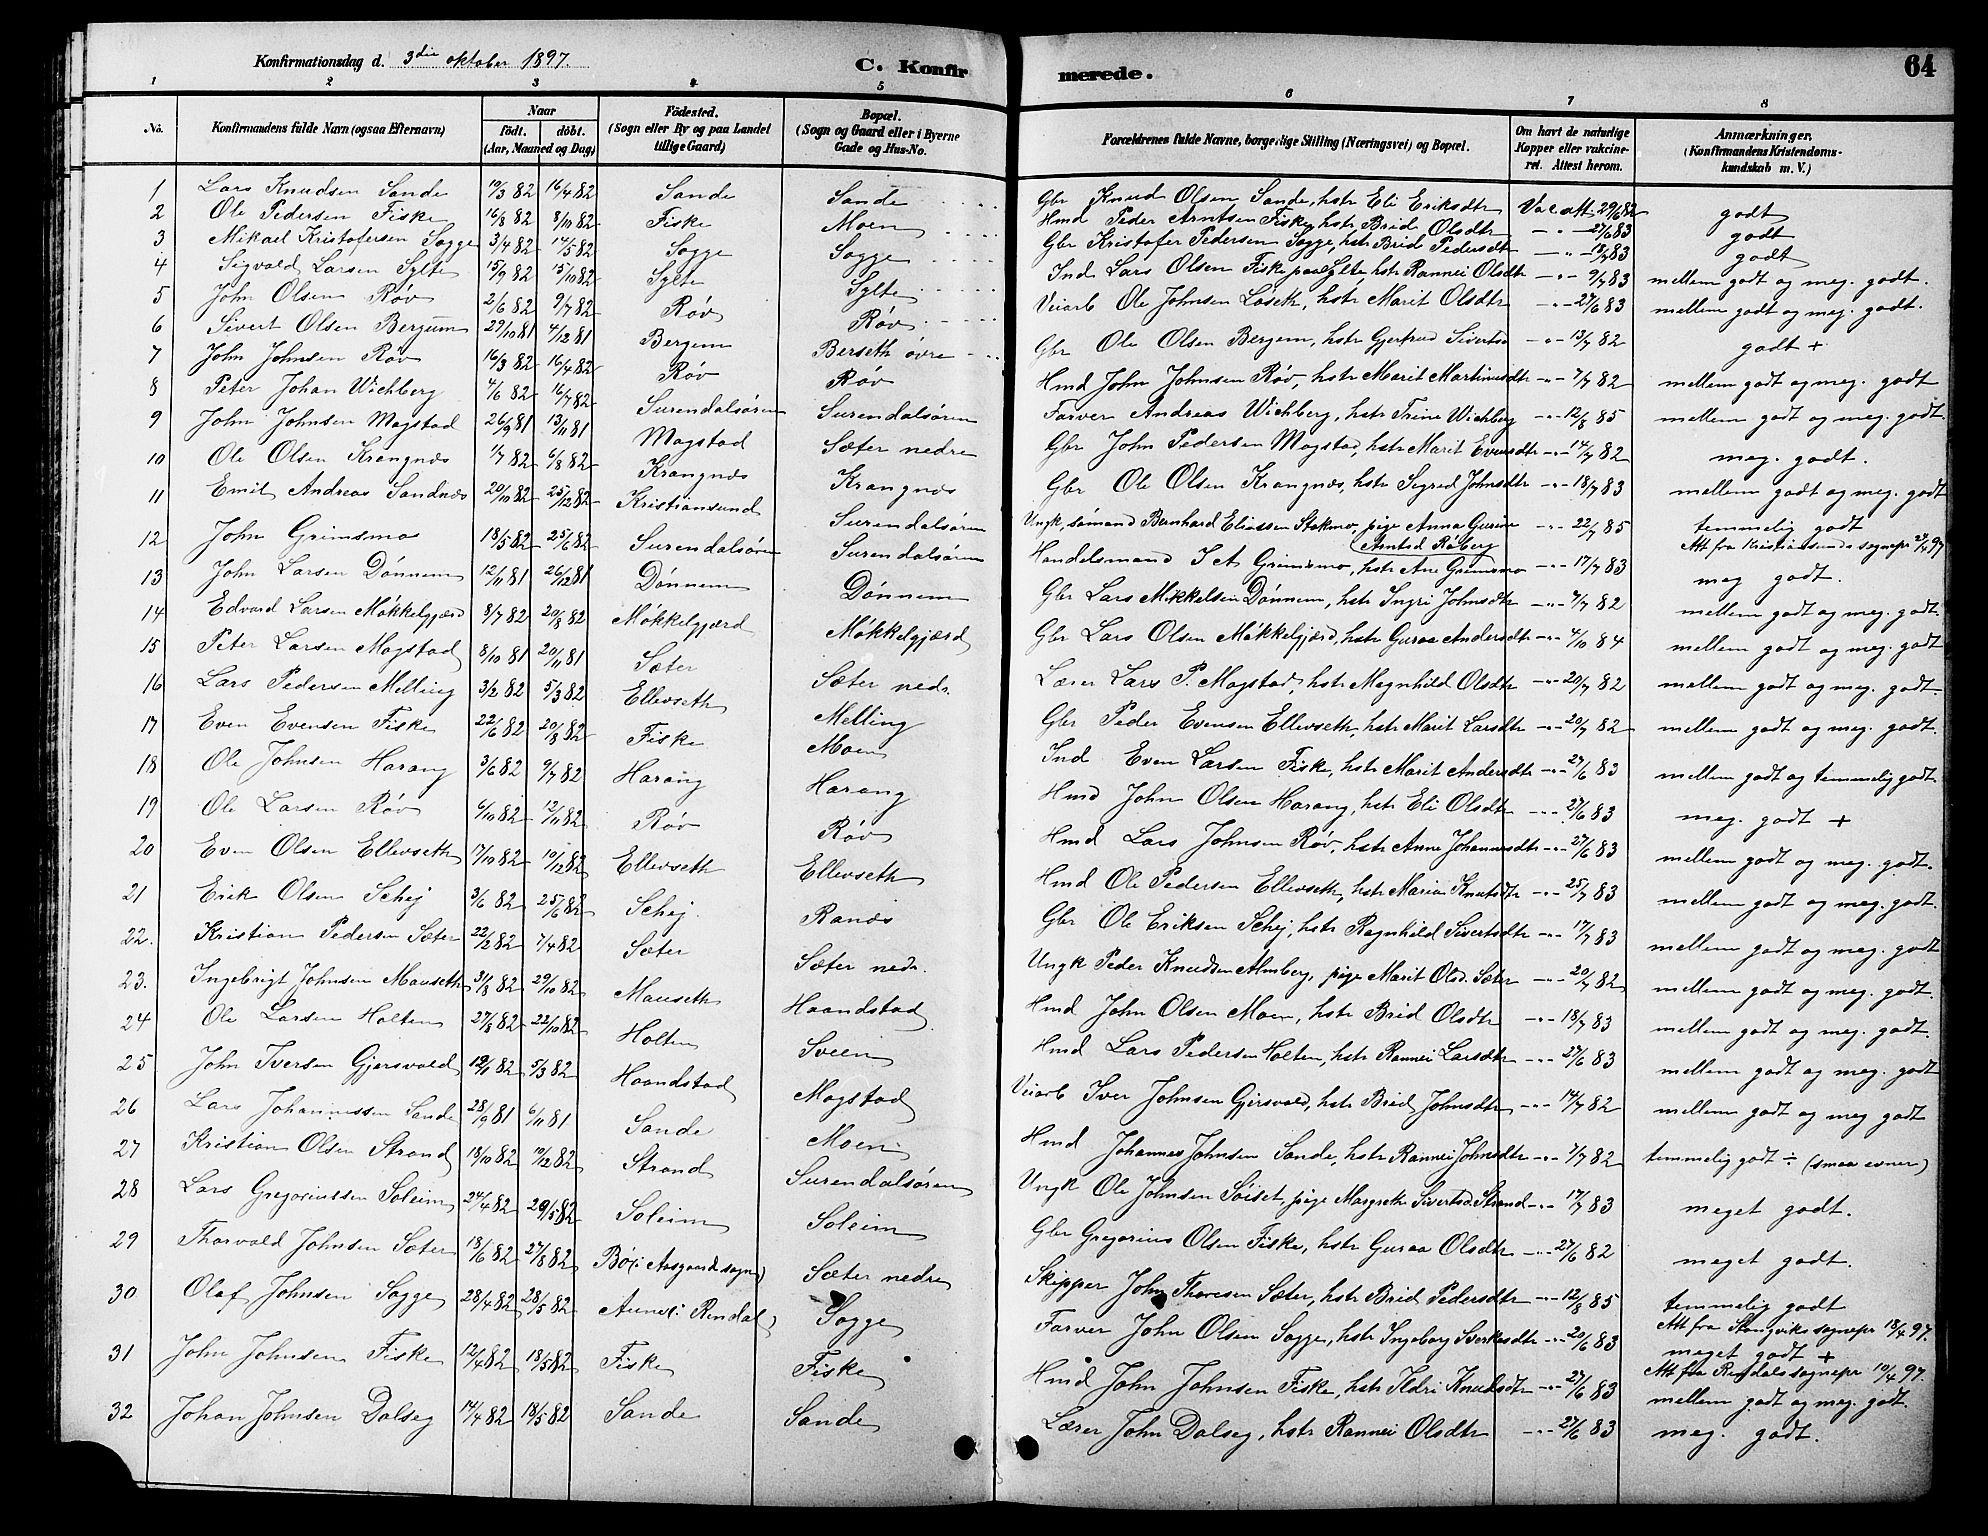 Konfirmationsdag d. 3die oktober 1897.
C. Konfirmerede.
64
1 2 3 4 5 6 7 8
No. Konfirmandens fulde Navn (ogsaa Efternavn) Naar födt. döbt. (Aar, Maaned og Dag) Födested. (Sogn eller By og paa Landet tillige Gaard) Bopæl. (Sogn og Gaard eller i Byerne Gade og Hus-No. Forældrenes fulde Navne, borgerlige Stilling (Næringsvei) og Bopæl. Om havt de naturlige Kopper eller vakcineret. Attest herom. Anmærkninger. (Konfirmandens Kristendomskundskab m. V.)
1 Lars Knudsen Sande 19/3 82 16/4 82 Sande Sande Gbr Knud Olsen Sande, hstr Eli Eriksdtr Vac att. 29/6 82 godt
2 Ole Pedersen Fiske 16/8 82 8/10 82 Fiske Moen Hmd Peder Arntsen Fiske, hstr Brid Olsdtr -"- 27/6 83 godt
3 Mikael Kristofersen Sogge 3/4 82 14/5 82 Sogge Sogge Gbr Kristofer Pedersen Sogge, hstr Brid Pedersdtr -"- 18/7 83 godt
4 Sigvald Larsen Sylte 15/9 82 15/10 82 Sylte Sylte Ind Lars Olsen Fiske paa Sylte, hstr Rannei Olsdtr -"- 9/7 83 mellem godt og meg. godt.
5 John Olsen Røv 2/6 82 9/7 82 Røv Røv Veiarb Ole Johnsen Løseth, hstr Marit Olsdtr -"- 27/6 83 mellem godt og meg. godt.
6 Sivert Olsen Bergem 29/10 81 4/12 81 Bergem Berseth øvre Gbr Ole Olsen Bergem, hstr Gjertrud Sivertsd -"- 13/7 82 godt +
7 John Johnsen Røv 16/3 82 16/4 82 Røv Røv Hmd John Johnsen Røv, hstr Marit Martinusdtr -"- 7/7 82 mellem godt og meg. godt
8 Peter Johan Wichberg 4/6 82 16/7 82 Surendalsøren Surendalsøren Farver Andreas Wichberg, hstr Trine Wichberg -"- 12/8 85 mellem godt og meg. godt.
9 John Johnsen Mogstad 26/9 81 13/11 81 Mogstad Sæter nedre Gbr John Pedersen Mogstad, hstr Marit Evensdtr -"- 14/7 82 meg. godt.
10 Ole Olsen Krangnæs 1/7 82 6/8 82 Krangnæs Krangnæs Gbr Ole Olsen Krangnæs, hstr Sigrid Johnsdtr -"- 18/7 83 mellem godt og meg. godt
11 Emil Andreas Sandnæs 20/10 82 25/12 82 Kristiansund Surendalsøren Ungk, sømand Bernhard Eliassen Stokmo, pige Anna Gurine Arntsd Røberg -"- 22/7 85 temmelig godt Att fra Kristiansunds sognepr 97
12 John Grimsmo 18/5 82 25/6 82 Surendalsøren Surendalsøren Handelsmand I A Grimsmo, hstr Ane Grimsmo -"- 17/7 83 meg godt.
13 John Larsen Dønnem 12/11 81 26/12 81 Dønnem Dønnem Gbr Lars Mikkelsen Dønnem, hstr Ingri Johnsdtr -"- 7/7 82 mellem godt og meg. godt.
14 Edvard Larsen Møkkelgjærd 8/7 82 20/8 82 Møkkelgjærd Møkkelgjærd Gbr Lars Olsen Møkkelgjerd, hstr Guraa Andersdtr -"- 4/10 84 mellem godt og meg. godt
15 Peter Larsen Mogstad 8/10 81 20/11 81 Sæter Sæter nedr. Lærer Lars P. Mogstad, hstr Magnhild Olsdtr -"- 20/7 82 mellem godt og meg. godt.
16 Lars Pedersen Melling 3/2 82 5/3 82 Ellevseth Melling Gbr Peder Evensen Ellevseth, hstr Marit Larsdtr -"- 20/7 82 mellem godt og meg. godt.
17 Even Evensen Fiske 22/6 82 20/8 82 Fiske Moen Ind Even Larsen Fiske, hstr Marit Andersdtr -"- 27/6 83 mellem godt og temmelig godt.
18 Ole Johnsen Harang 3/6 82 9/7 82 Harang Harang Hmd John Olsen Harang, hstr Eli Olsdtr -"- 27/6 83 meg. godt +
19 Ole Larsen Røv 6/10 82 12/11 82 Røv Røv Hmd Lars Johnsen Røv, hstr Anne Johannesdtr -"- 27/6 83 mellem godt og meg. godt.
20 Even Olsen Ellevseth 17/10 82 10/12 82 Ellevseth Ellevseth Hmd Ole Pedersen Ellevseth, hstr Maria Knutsdtr -"- 25/7 83 mellem godt og meg. godt.
21 Erik Olsen Schej 3/6 82 25/6 82 Schej Ranæs Gbr Ole Eriksen Schej, hstr Ragnhild Sivertsdtr -"- 17/7 83 mellem godt og meg. godt
22. Kristian Pedersen Sæter 22/2 82 7/4 82 Sæter Sæter nedr. Ungk Peder Knudsen Almberg, pige Marit Olsd. Sæter -"- 20/7 82 mellem godt og meg. godt.
23. Ingebrigt Johnsen Mauseth 31/8 82 29/10 82 Mauseth Haandstad Hmd John Olsen Moen, hstr Brid Olsdtr -"- 18/7 83 mellem godt og meg. godt.
24 Ole Larsen Holten 27/8 82 22/10 82 Holten Sveen Hmd Lars Pedersen Holten, hstr Rannei Larsdtr -"- 27/6 83 mellem godt og meg. godt
25 John Iversen Gjersvold 19/1 82 5/3 82 Haandstad Mogstad Veiarb Iver Johnsen Gjersvold, hstr Brid Johnsdtr -"- 14/7 82 mellem godt og meg godt
26 Lars Johannessen Sande 28/9 81 6/11 81 Sande Moen Hmd Johannes Johnsen Sande, hstr Rannei Johnsdtr -"- 7/7 82 temmelig godt ÷ (smaa evner)
27 Kristian Olsen Strand 18/10 82 10/12 82 Strand Surendalsøren Ungk Ole Johnsen Søiset, pige Margrethe Sivertsd. Strand -"- 17/7 83 meget godt.
28 Lars Gregoriussen Soleim 24/4 82 29/5 82 Soleim Soleim Gbr Gregorius Olsen Fiske, hstr Guraa Olsdtr -"- 27/6 82 meget godt.
29 Thorvald Johnsen Sæter 18/6 82 27/8 82 Bø (i Aasgaards sogn) Sæter nedre Skipper John Thoresen Sæter, hstr Brid Pedersdtr -"- 12/8 85 temmelig godt Att fra Stangviks sognepr 18/4 97.
30 Olaf Johnsen Sogge 28/4 82 28/5 82 Aune (i Rindal) Sogge Farver John Olsen Sogge, hstr Ingeborg Sverkesdtr -"- 20/6 83 meget godt + Att fra Rindals sognepr 10/4 97.
31 John Johnsen Fiske 12/4 82 18/5 82 Fiske Fiske Hmd John Johnsen Fiske, hstr Ildri Knudsdtr -"- 27/6 83 mellem godt og meg. godt.
32 Johan Johnsen Dalseg 14/4 82 18/5 82 Sande Sande Lærer John Dalseg, hstr Rannei Olsdtr -"- 27/6 83 meg. godt.